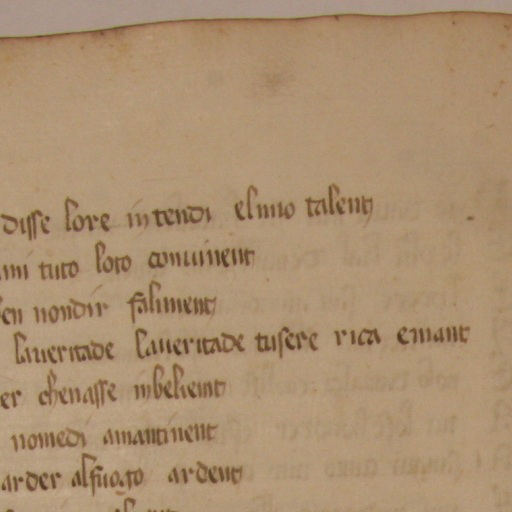 disse lore intendi elmio talent
tuto loto conuinent
nondir faliment
laueritade laueritade tusere rica emant
er chenasse inbelieint
nomedi amantinent
arder alfuogo ardent